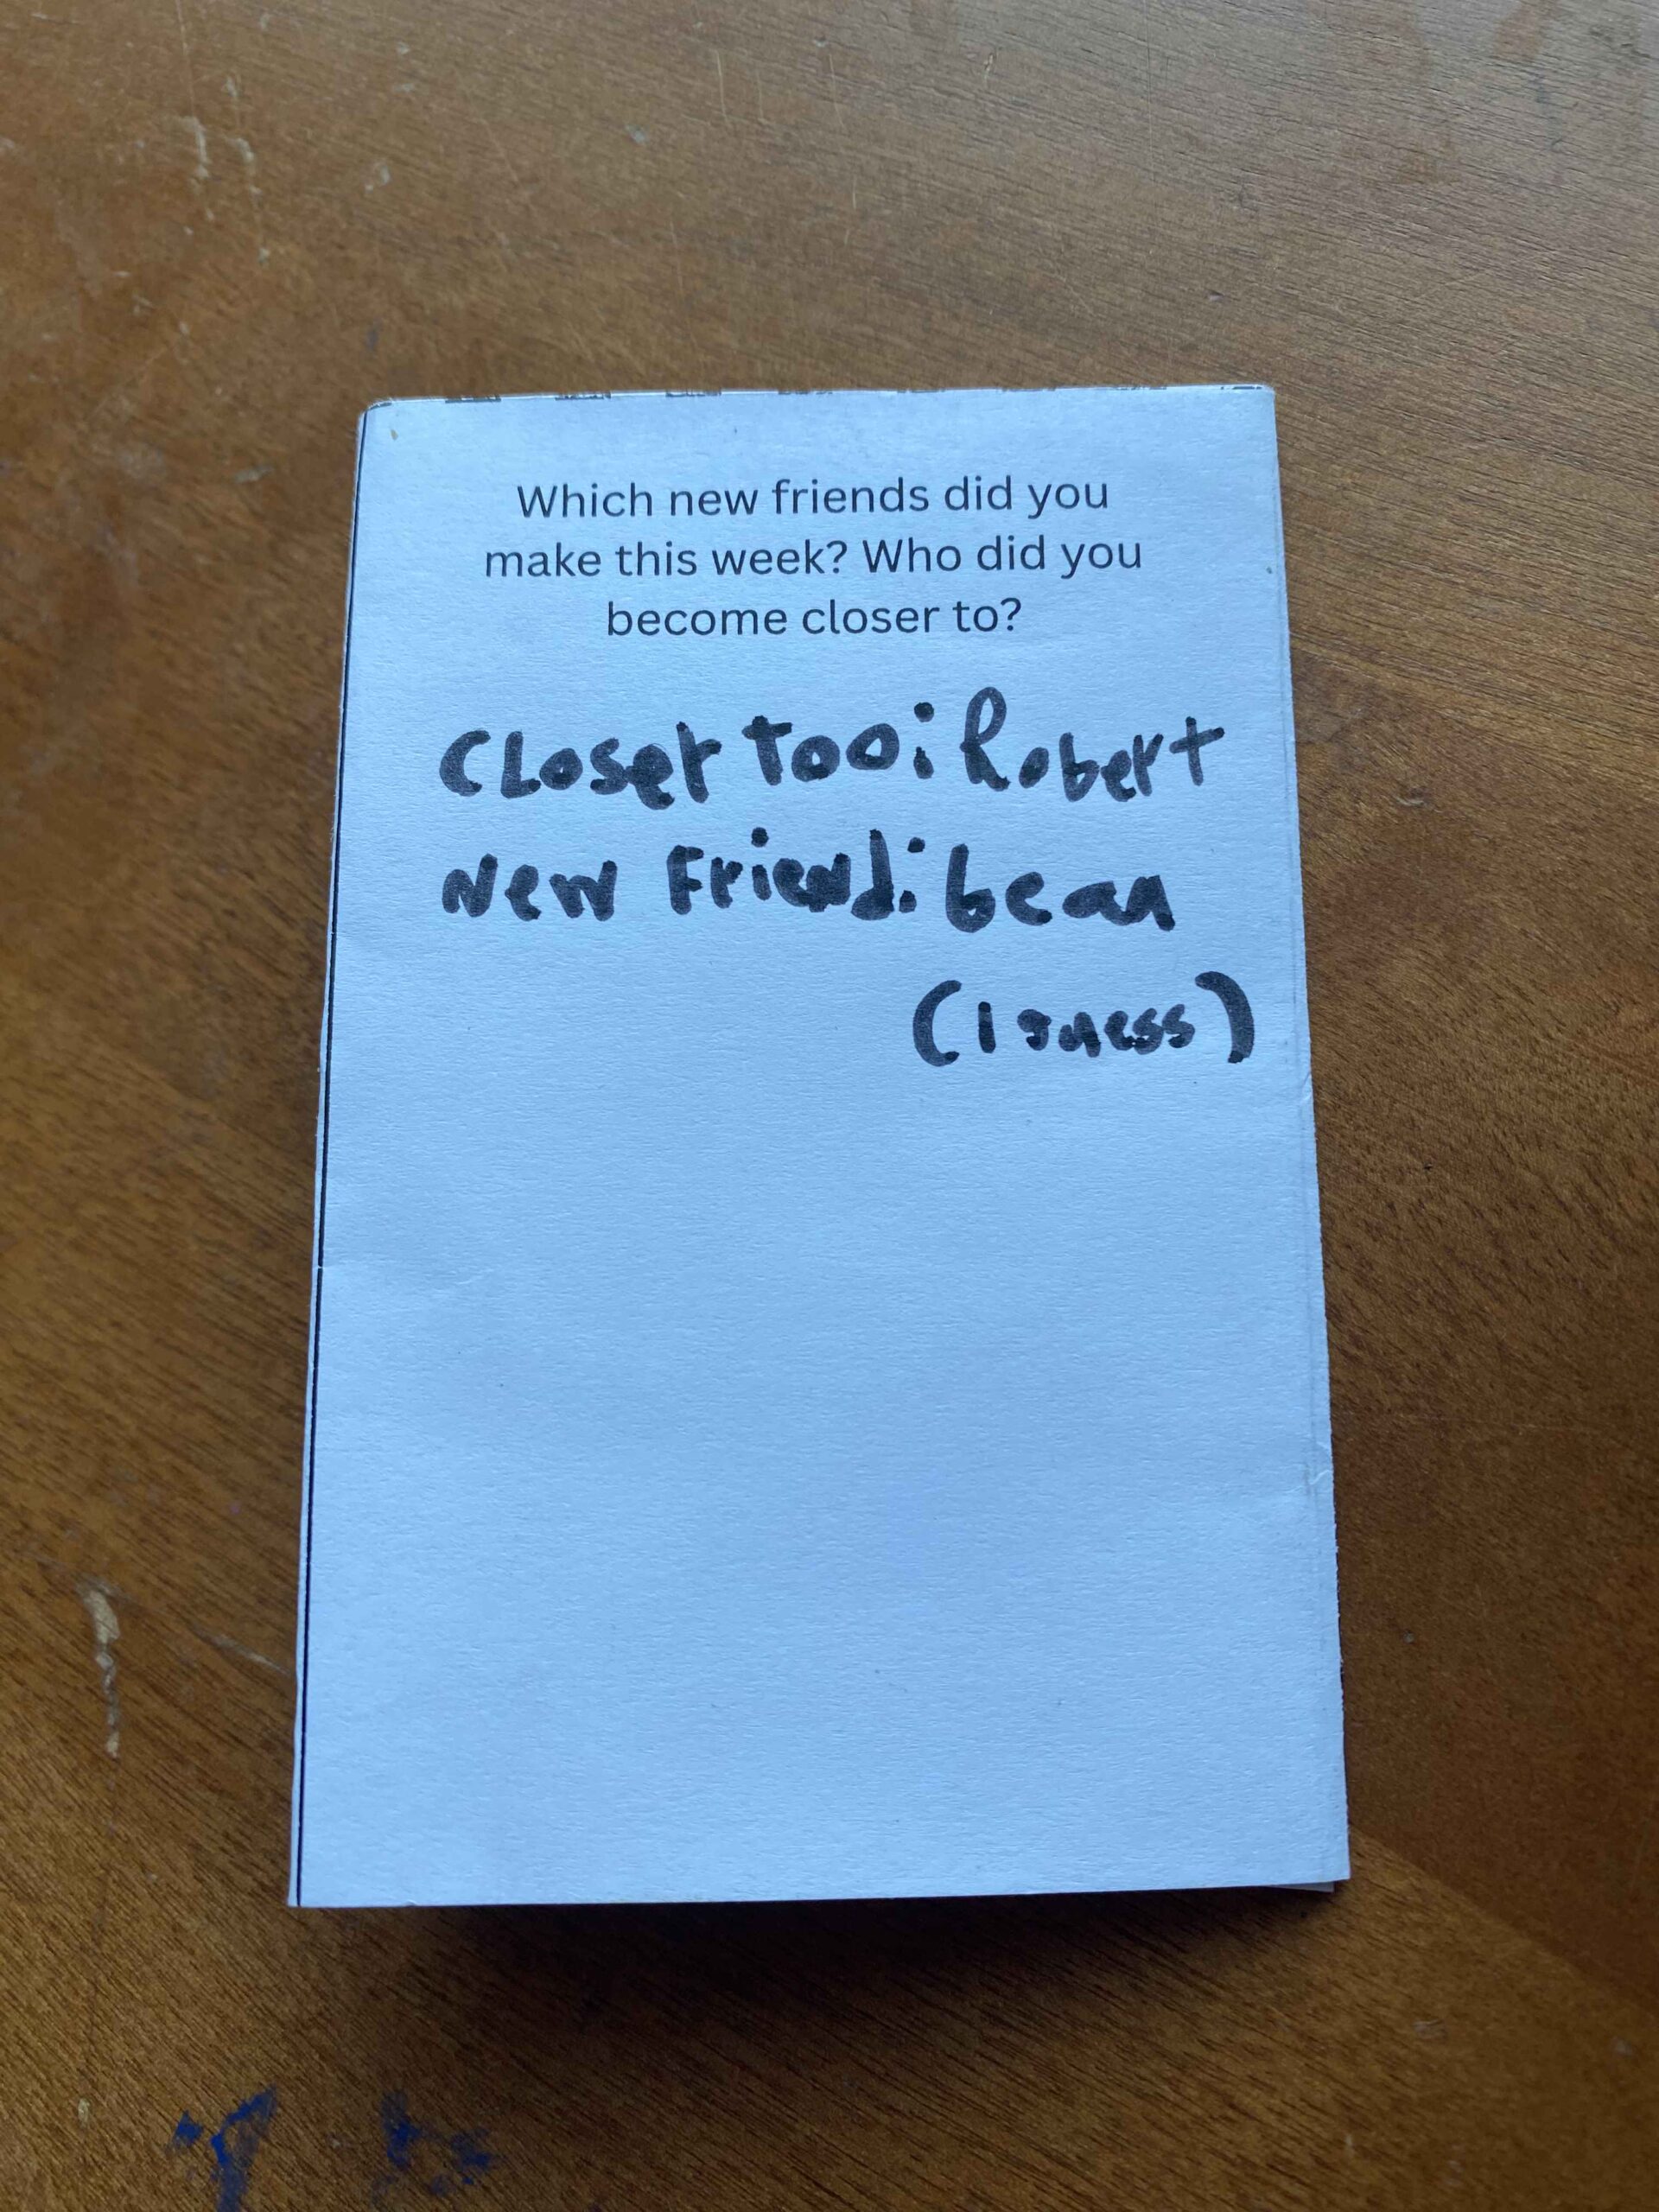 Which new friends did you
make this week? Who did you
become closer to?
Closer Too: Robert
New Friend: bean
(I guess)